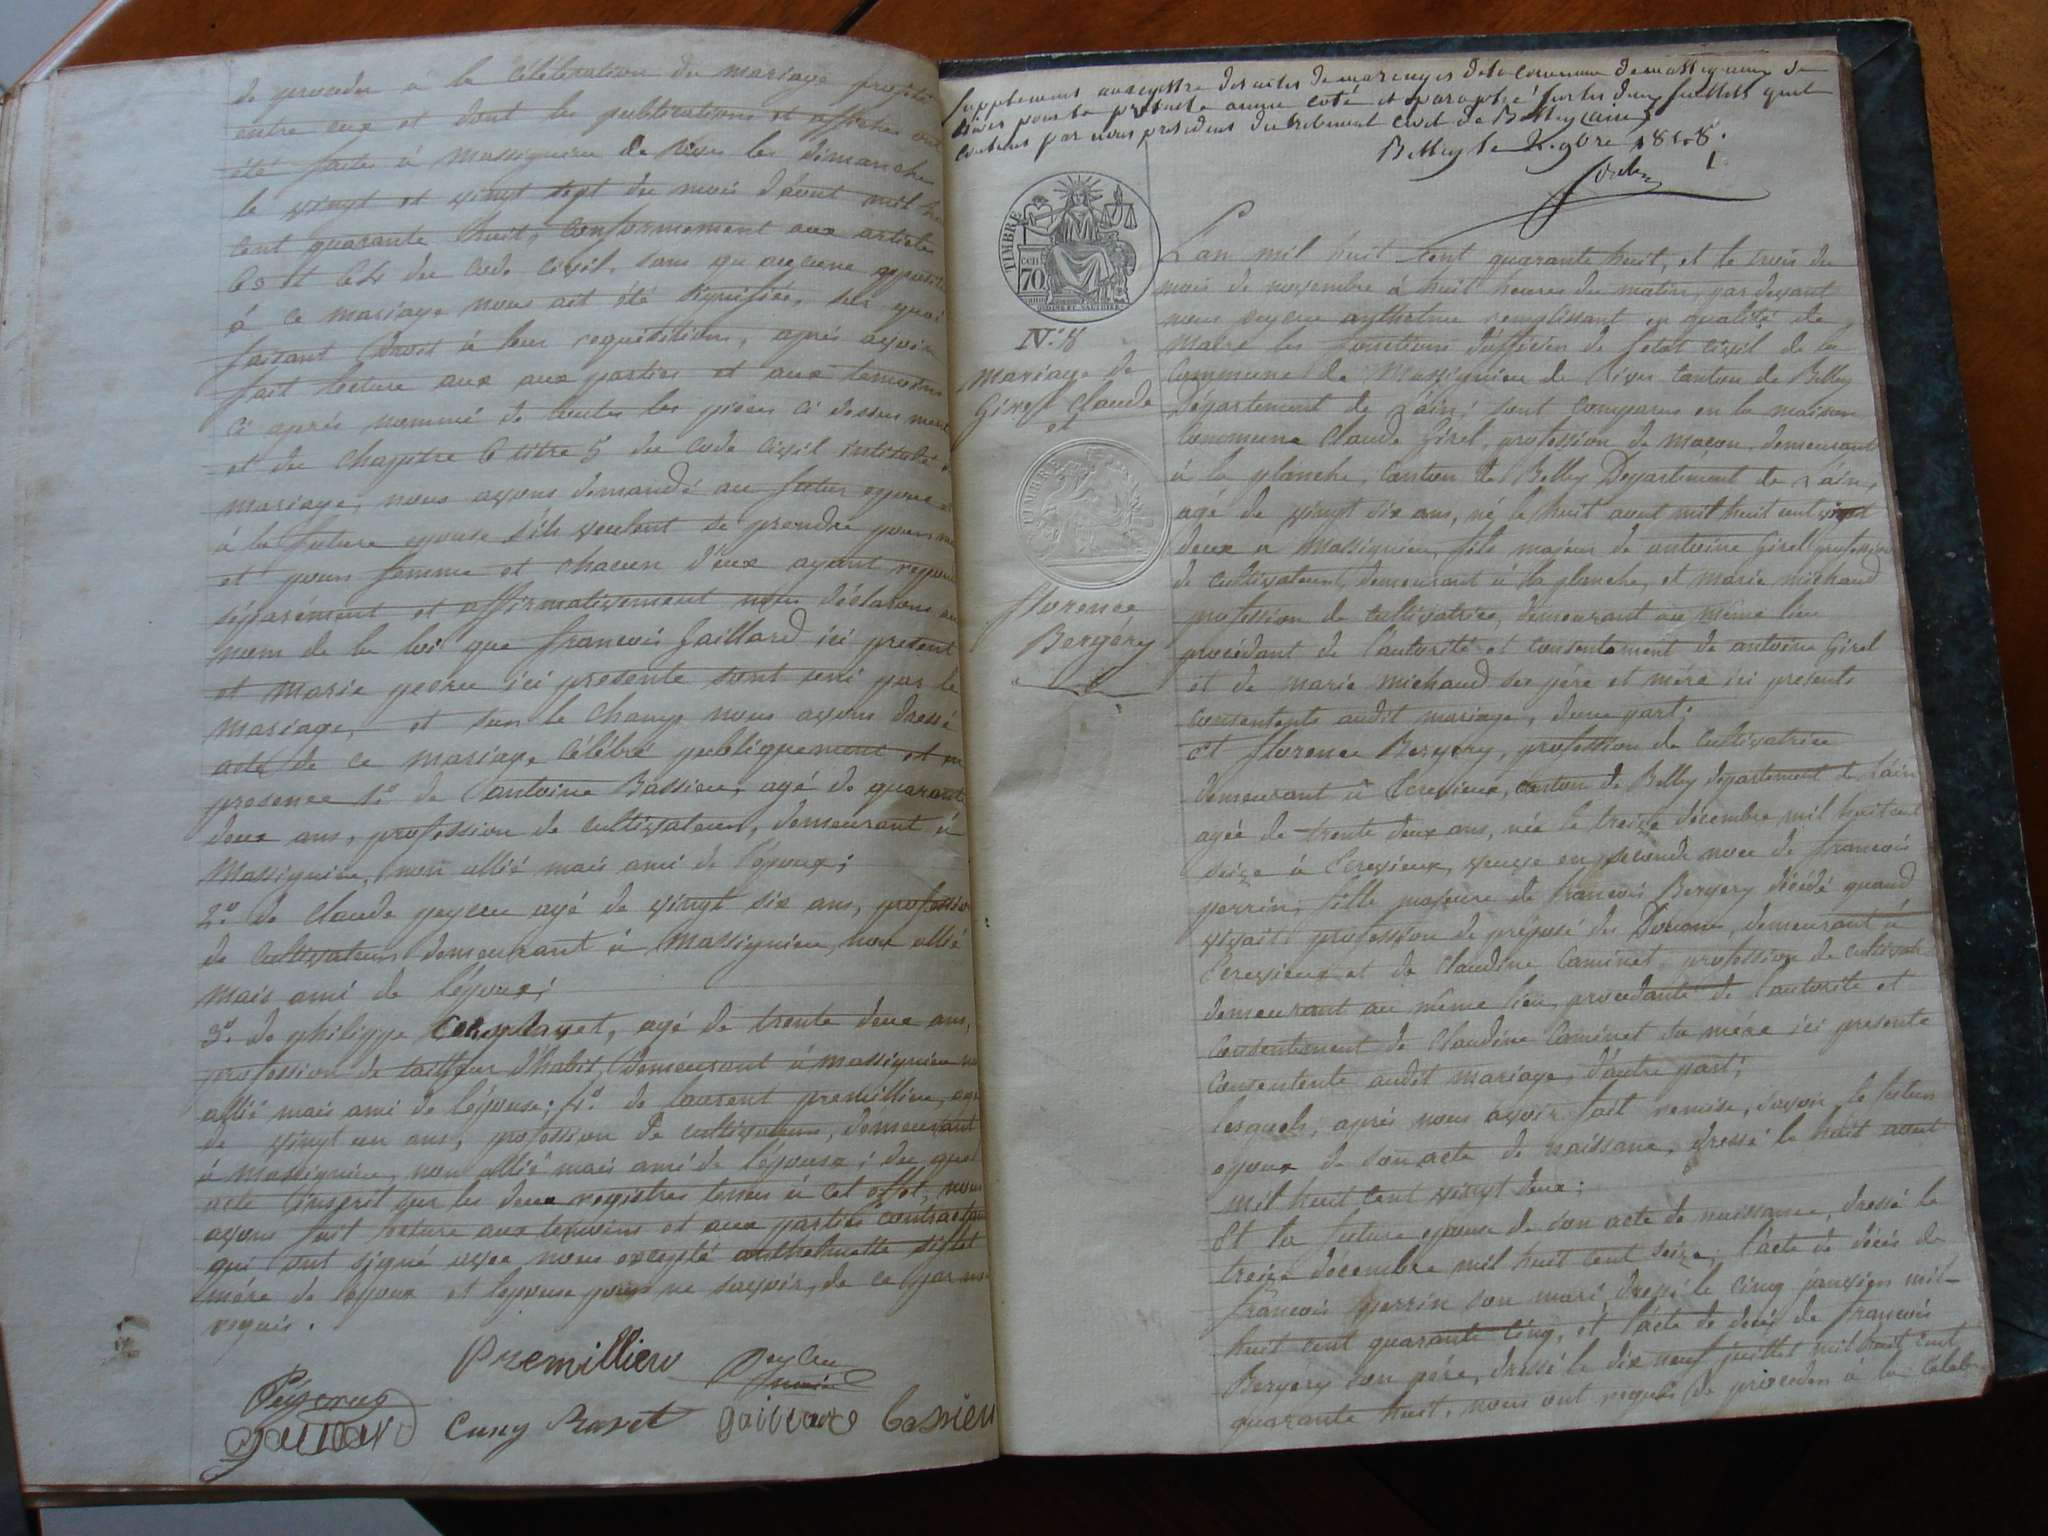 de proceder a la célébration du mariage projeté
entre eux et dont les publications et affiches ont
été faites à Massignieu de rives les dimanches
le vingt et vingt sept du mois d'août mil huit
cent quarante huit, conformement aux articles
63 et 64 du code civil, sans qu'aucune opposition
à ce mariage nous ait été signifiée, sur quoi
faisant droit à leur requisitions, après avoir
fait lecture aux aux parties et aux temoins
ci après nommé de toutes les pièces ci dessus
et du chapitre 6 titre 5 du code civil intitulé
mariage, nous avons demandé au futur epoux et
à la future epouse s'ils veulent se prendre pour
et pour femme et chacun d'eux ayant repondu
séparément et affirmativement nous déclarons au
nom de la loi que françois Gaillard ici present
et marie peycru ici presente sont uni par le
mariage, et sur le champ nous avons dressé
acte de ce mariage célébré publiquement et en
presence 1.° de antoine Bassieu, agé de quarante
deux ans, profession de cultivateur, demeurant à
Massignieu, non allié mais ami de l'époux;
2.° de Claude peycru agé de vingt six ans, profession
de cultivateur demeurant à Massignieu, non allié
mais ami de l'époux;
3.° de philippe agé de trente deux ans,
profession de tailleur d'habit, demeurant à massignieu
allié mais ami de l'épouse; 4.° de laurent premillieu, agé
de vingt un ans, profession de cultivateur, demeurant
à massignieu, non allié mais ami de l'épouse; du quel
acte inscrit sur les deux registres tenus à cet effet, nous
avons fait lecture aux temoins et aux parties contractantes
qui ont signé avec nous excepté
mère de l'époux et l'epouse pour ne savoir, de ce par nous
requis.
Premillieu Peycru
Peycru
Gaillard Cuny Ravet gaillard bassieu
supplement au registre des actes de mariages de la commune de massignieu de
rives pour la presente année coté et paraphé sur les deux feuillets qu'il
contient par nous president du tribunal civil de Belley (ain)
Belley le 2 9bre 1848.
1
TIMBRE
70
N.° 8
Mariage de
Girel Claude
et
TIMBRE
florence
Bergery
L'an mil huit cent quarante huit, et le trois du
mois de novembre à huit heures du matin, par devant
nous peycru anthelme remplissant en qualité de
Maire les fonctions d'officier de l'etat civil de la
Commune de Massignieu de Rives canton de Belley
Département de l'ain, sont comparus en la maison
Commune Claude Girel, profession de maçon, demeurant
à la planche, canton de Belley Departement de l'ain,
agé de vingt six ans, né le huit aout mil huit cent vingt
deux a Massignieu, fils majeur de antoine Girel profession
de cultivateur, demeurant à la planche, et marie michaud
profession de cultivatrice, demeurant au même lieu
procédant de l'autorité et consentement de antoine Girel
et de marie michaud ses père et mère ici presents
consentents audit mariage, d'une part;
et florence Bergery, profession de cultivatrice
demeurant à Cressieux, canton de Belley departement de l'ain
agée de trente deux ans, née le treize décembre mil huit cent
seize à Cressieux, veuve en seconde noce de francois
perrin, fille majeure de francois Bergery décédé quand
vivait profession de préposé des Douanes, demeurant à
Cressieux et de Claudine Caminet, profession de cultivat
demeurant au même lieu, procedante de l'autorité et
consentement de Claudine Caminet sa mère ici presente
Consentente audit mariage, d'autre part;
lesquels, après nous avoir fait remise, savoir le futur
epoux de son acte de naissance, dressé le huit aout
mil huit cent vingt deux;
Et la future epouse de son acte de naissance, dressé le
treize décembre mil huit cent seize, l'acte de décès de
françois perrin son mari dressé le cinq janvier mil
huit cent quarante cinq, et l'acte de décès de françois
Bergery son père, dressé le dix neuf juillet mil huit cent
quarante huit, nous ont requis de proceder à la celebr